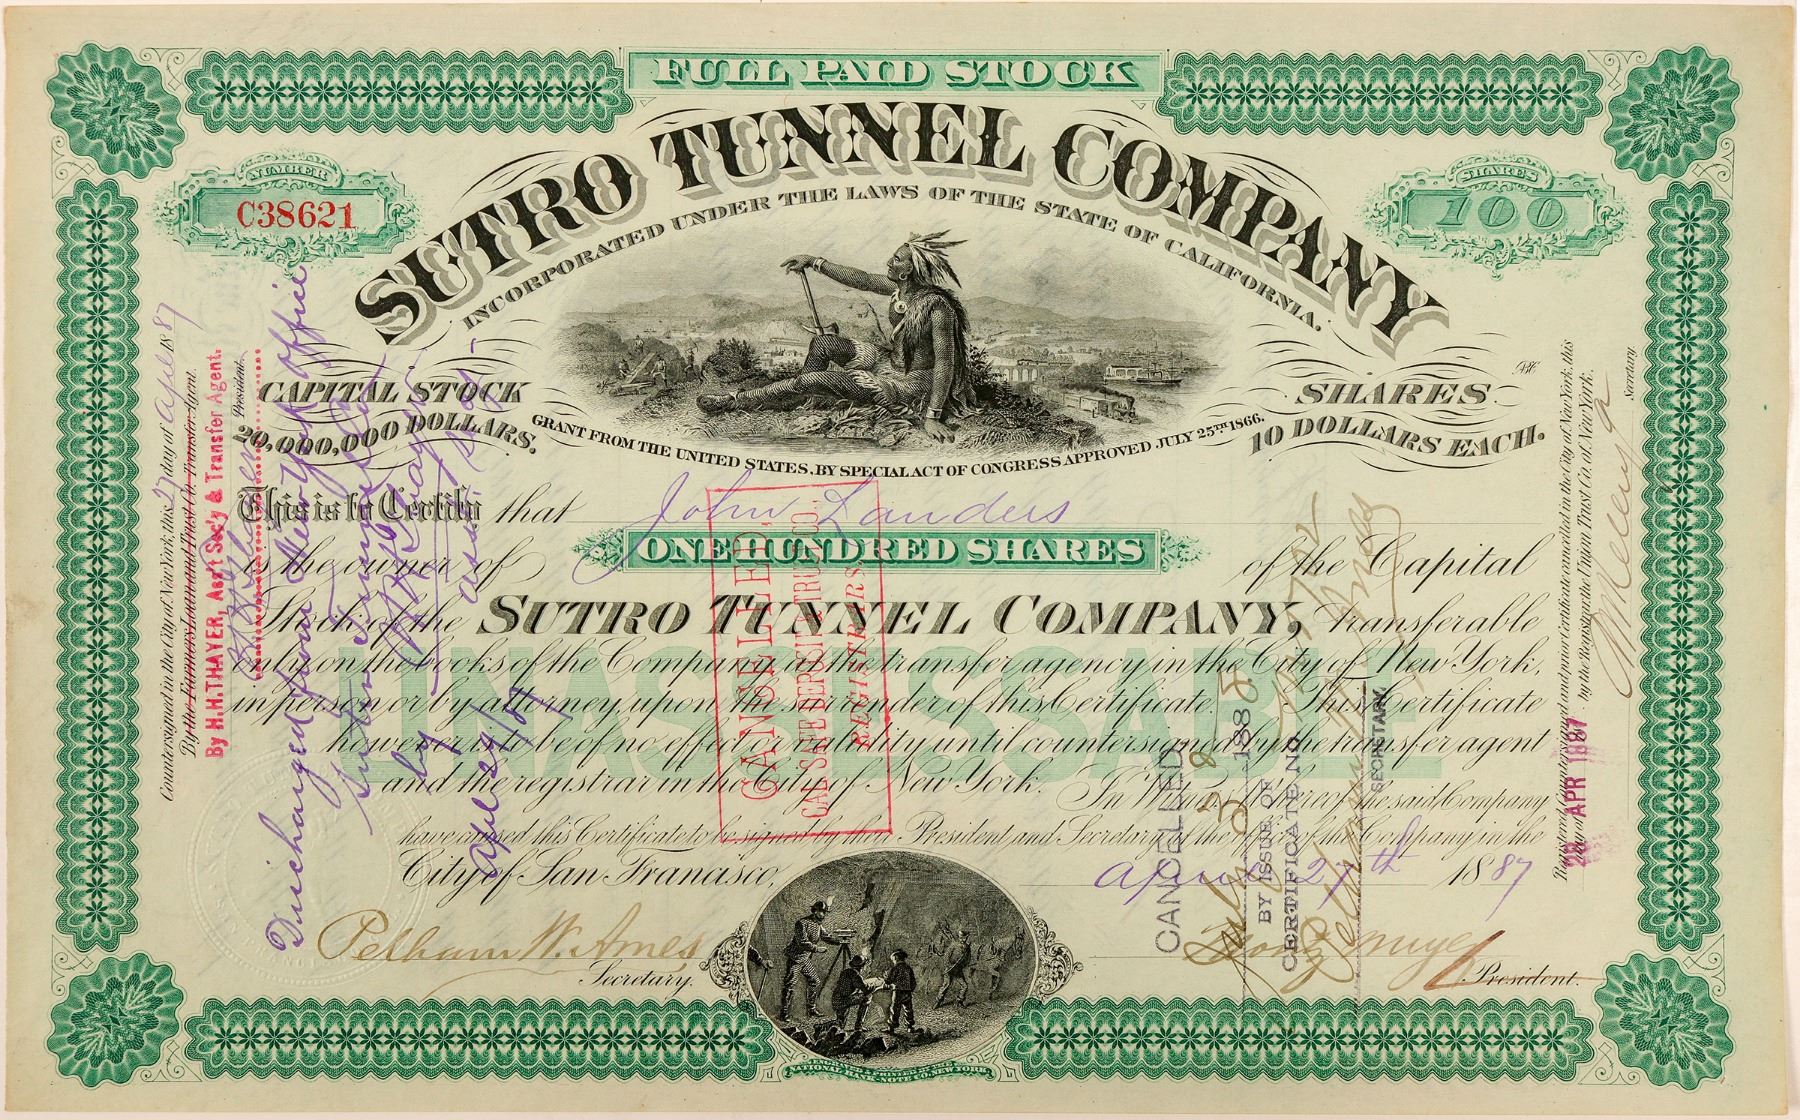 FULL PAID STOCK
SUTRO TUNNEL COMPANY
INCORPORATED UNDER THE LAWS OF THE STATE OF CALIFORNIA.
NUMBER
C38621
SHARES
100
CAPITAL STOCK
20,000,000 DOLLARS.
SHARES
10 DOLLARS EACH.
GRANT FROM THE UNITED STATES, BY SPECIAL ACT OF CONGRESS APPROVED JULY 25TH 1866.
This is to Certify that John Landers
is the owner of ONE HUNDRED SHARES of the Capital
Stock of the SUTRO TUNNEL COMPANY, transferable
only on the books of the Company at the transfer agency in the City of New York,
in person or by attorney, upon the surrender of this Certificate. This Certificate
however to be of no effect or validity until countersigned by the transfer agent
and the registrar in the City of New York. In Witness Whereof the said Company
have caused this Certificate to be signed by their President and Secretary at the office of the Company in the
City of San Francisco, April 27th 1887
UNASSESSABLE
Pelham W. Ames
Secretary.
President.
NATIONAL BANK NOTE CO. NEW YORK
Countersigned in the City of New York, this 27 day of April 1887
By the Farmers Loan and Trust Co. Transfer Agent.
By H.H. THAYER, Ass't Sec'y & Transfer Agent.
President.
Discharged from New York Office
Sutro Tunnel Co
by
April 29/87
CANCELLED
CAL. SAFE DEPOSIT & TRUST CO.
REGISTRARS
CANCELLED
188
BY ISSUE OF
CERTIFICATE NO
SECRETARY
Registered countersigned and prior Certificate canceled in the City of New York, this
day of
28 APR 1887
by the Registrar the Union Trust Co. of New York.
Secretary.